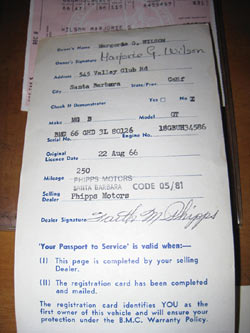 WILSON MARJORIE G
Owner's Name Margorie G. WILSON
Owner's Signature Marjorie G. Wilson
Address 545 Valley Club Rd
City Santa Barbara State/Prov. Calif
Check If Demonstrator Yes No
Make MG B Model GT
Serial No. Engine No. 18GBUH34586
Original
Licence Date 22 Aug 66
Mileage 250
PHIPPS MOTORS
SANTA BARBARA CODE 05/81
Selling
Dealer Phipps Motors
Dealer Signature
'Your Passport to Service' is valid when:—
(I) This page is completed by your selling
Dealer.
(II) The registration card has been completed
and mailed.
The registration card identifies YOU as the
first owner of this vehicle and will ensure
your protection under the B.M.C. Warranty Policy.